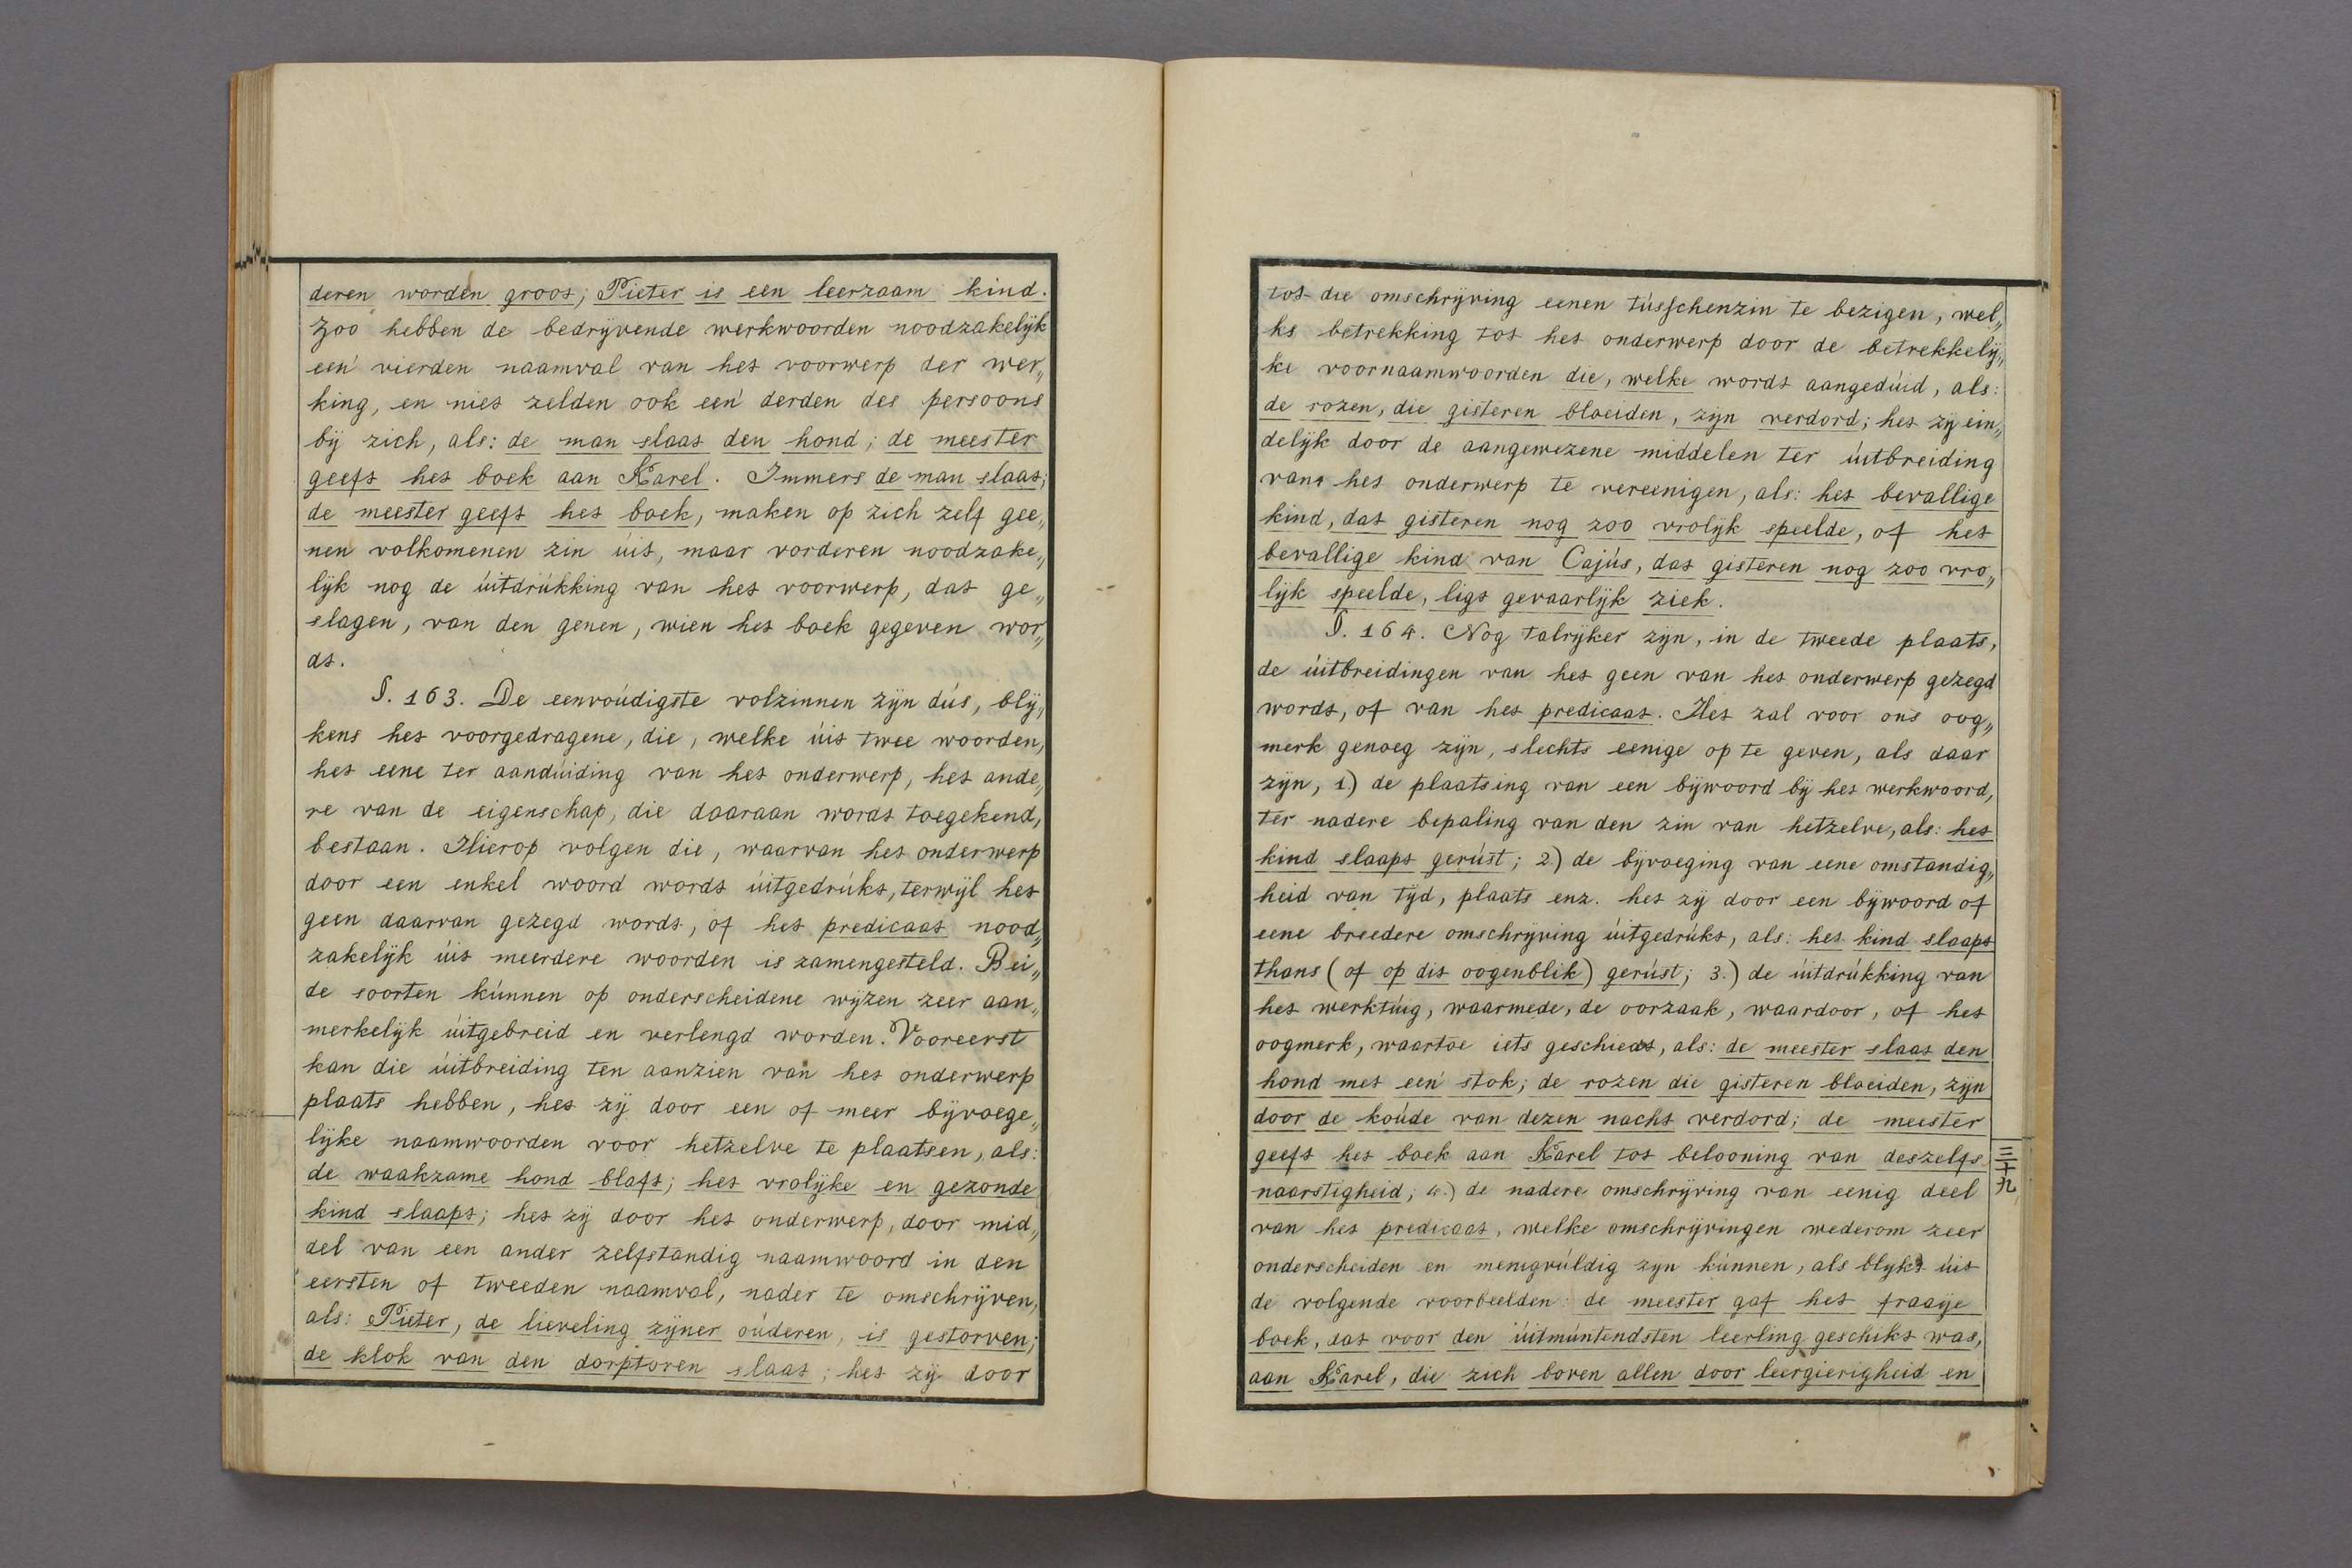 deren worden groot; Pieter is een leerzaam kind.
Zoo hebben de bedrijvende werkwoorden noodzakelijk
een' vierden naamval van het voorwerp der wer„
king, en niet zelden ook een' derden des persoons
bij zich, als: de man slaat den hond; de meester
geeft het boek aan Karel. Immers de man slaat;
de meester geeft het boek, maken op zich zelf gee„
nen volkomenen zin úit, maar vorderen noodzake„
lijk nog de úitdrúkking van het voorwerp, dat ge„
slagen, van den genen, wien het boek gegeven wor„
dt.
§. 163. De eenvoúdigste volzinnen zijn dús, blij„
kens het voorgedragene, die, welke úit twee woorden,
het eene ter aandúiding van het onderwerp, het ande„
re van de eigenschap, die daaraan wordt toegekend,
bestaan. Hierop volgen die, waarvan het onderwerp
door een enkel woord wordt úitgedrúkt, terwijl het
geen daarvan gezegd wordt, of het predicaat nood„
zakelijk úit meerdere woorden is zamengesteld. Bei„
de soorten kúnnen op onderscheidene wijzen zeer aan„
merkelijk úitgebreid en verlengd worden. Vooreerst
kan die úitbreiding ten aanzien van het onderwerp
plaats hebben, het zij door een of meer bijvoege„
lijke naamwoorden voor hetzelve te plaatsen, als:
de waakzame hond blaft; het vrolijke en gezonde
kind slaapt; het zij door het onderwerp, door mid„
del van een ander zelfstandig naamwoord in den
eersten of tweeden naamval, nader te omschrijven,
als: Pieter, de lieveling zijner oúderen, is gestorven;
de klok van den dorptoren slaat; het zij door
tot die omschrijving eenen tússchenzin te bezigen, wel„
ks betrekking tot het onderwerp door de betrekkelij„
ke voornaamwoorden die, welke wordt aangedúid, als:
de rozen, die gisteren bloeiden, zijn verdord; het zij ein„
delijk door de aangewezene middelen ter úitbreiding
van het onderwerp te vereenigen, als: het bevallige
kind, dat gisteren nog zoo vrolijk speelde, of het
bevallige kind van Cajús, dat gisteren nog zoo vro„
lijk speelde, ligt gevaarlijk ziek.
§. 164. Nog talrijker zijn, in de tweede plaats,
de úitbreidingen van het geen van het onderwerp gezegd
wordt, of van het predicaat. Het zal voor ons oog„
merk genoeg zijn, slechts eenige op te geven, als daar
zijn, 1.) de plaatsing van een bijwoord bij het werkwoord,
ter nadere bepaling van den zin van hetzelve, als: het
kind slaapt gerúst; 2.) de bijvoeging van eene omstandig„
heid van tijd, plaats enz. het zij door een bijwoord of
eene breedere omschrijving úitgedrúkt, als: het kind slaapt
thans (of op dit oogenblik) gerúst; 3.) de úitdrúkking van
het werktúig, waarmede, de oorzaak, waardoor, of het
oogmerk, waartoe iets geschiedt, als: de meester slaat den
hond met een' stok; de rozen die gisteren bloeiden, zijn
door de koúde van dezen nacht verdord; de meester
geeft het boek aan Karel tot belooning van deszelfs
naarstigheid; 4.) de nadere omschrijving van eenig deel
van het predicaat, welke omschrijvingen wederom zeer
onderscheiden en menigvúldig zijn kúnnen, als blijkt úit
de volgende voorbeelden: de meester gaf het fraaije
boek, dat voor den úitmúntendsten leerling geschikt was,
aan Karel, die zich boven allen door leergierigheid en
三十九